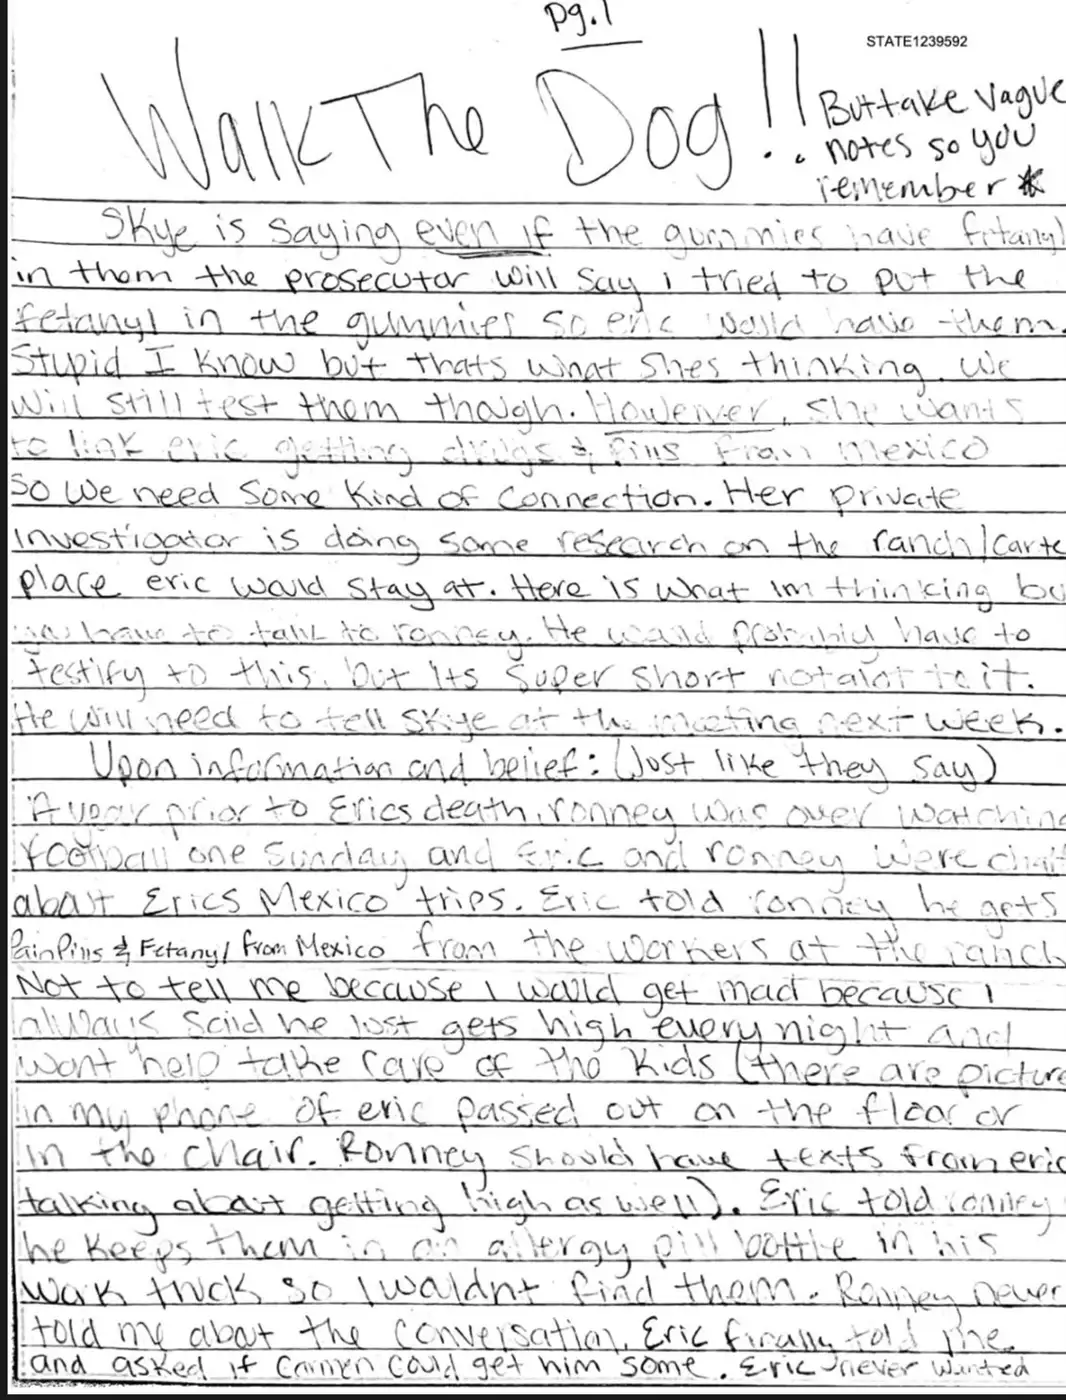 pg.1
STATE1239592
Walk The Dog!!
But take vague
notes so you
remember *
Skye is saying even if the gummies have fetanyl
in them the prosecutor will say i tried to put the
fetanyl in the gummies so eric would have them.
Stupid I know but thats what shes thinking. We
will still test them though. However, she wants
to link eric getting drugs & pills from mexico
So we need some kind of connection. Her private
investigator is doing some research on the ranch/carte
place eric would stay at. Here is what im thinking bu
you have to talk to ronney. He would probably have to
testify to this, but its super short notalot to it.
He will need to tell skye at the meeting next week.
Upon information and belief: (Just like they say)
A year prior to Erics death, ronney was over watching
football one Sunday and Eric and ronney were chatt
about Erics Mexico trips. Eric told ronney he gets
Pain Pills & Fetanyl from Mexico from the workers at the ranch
Not to tell me because I would get mad because I
always said he just gets high every night and
wont help take care of the kids (there are picture
in my phone of eric passed out on the floor or
in the chair. Ronney should have texts from eric
talking about getting high as well). Eric told ronney
he keeps them in an allergy pill bottle in his
work truck so I wouldnt find them. Ronney never
told me about the conversation. Eric finally told me
and asked if Carmen could get him some. Eric never wanted